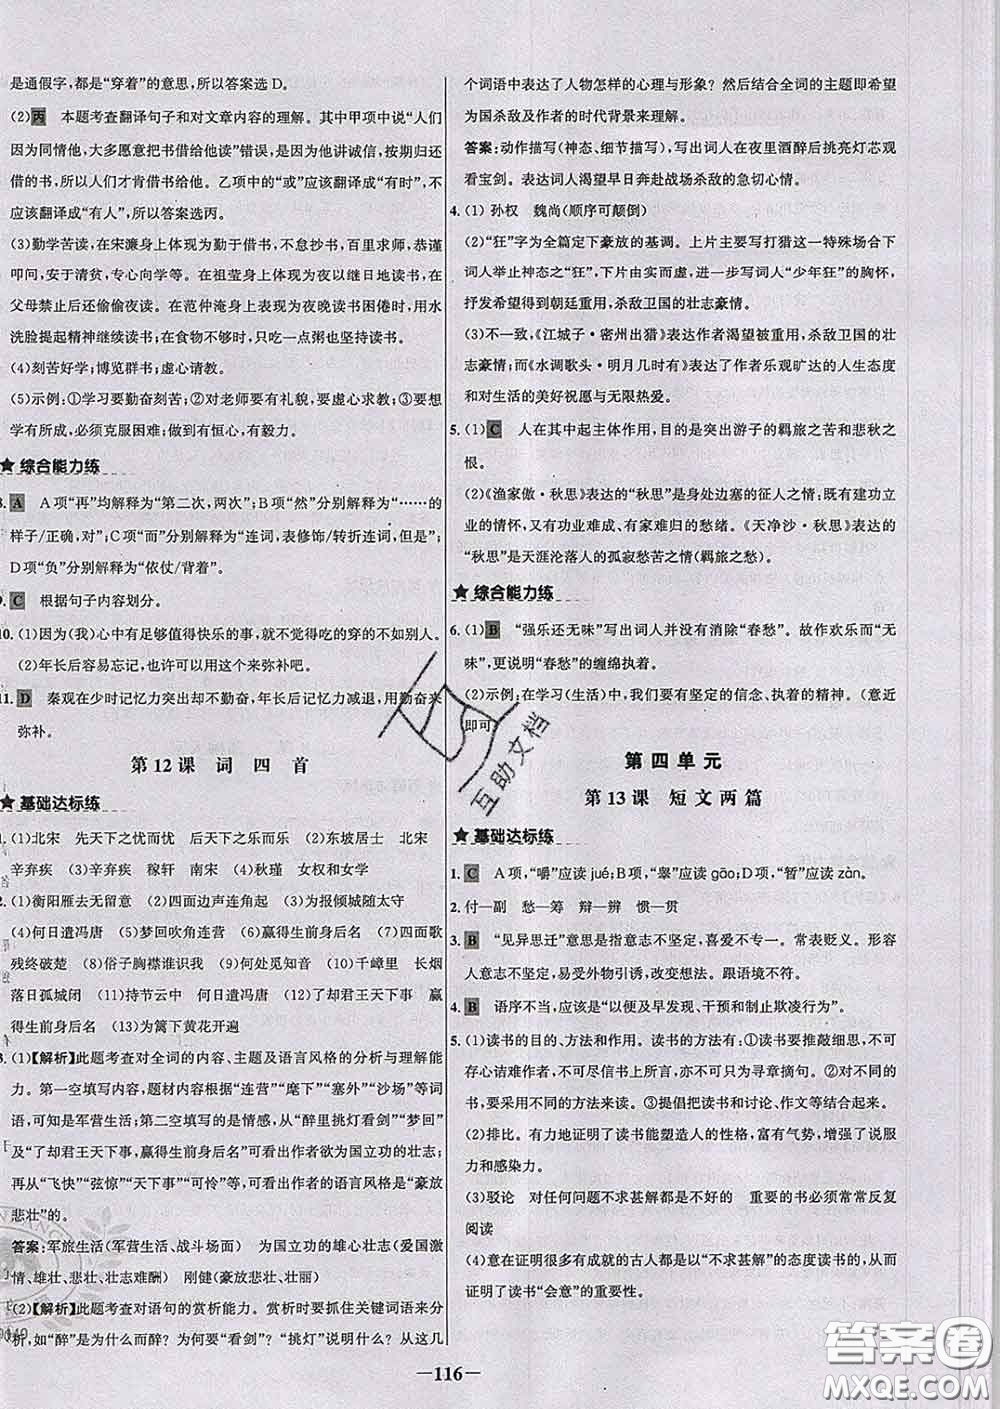 是通假字,都是“穿着”的意思,所以答案选D。
(2)丙 本题考查翻译句子和对文章内容的理解。其中甲项中说“人们
因为同情他,大多愿意把书借给他读”错误,是因为他讲诚信,按时归还
借的书,所以人们才肯借书给他。乙项中的“或”应该翻译成“有时”,不
应该翻译成“有人”,所以答案选丙。
(3)勤学苦读。在宋濂身上体现为勤于借书,不怠抄书,百里求师,恭谨
叩问,安于清贫,专心向学等。在祖莹身上体现为夜以继日地读书,在
父母禁止后还偷偷夜读。在范仲淹身上表现为夜晚读书困倦时,用水
洗脸提起精神继续读书;在食物不够时,只吃一点粥也坚持读书。
(4)刻苦好学;博览群书;虚心请教。
(5)示例:①学习要勤奋刻苦;②对老师要有礼貌,要虚心求教;③要想
学有所成,必须克服困难;做到有恒心,有毅力。
★综合能力练
A A项“再”均解释为“第二次,两次”;B项“然”分别解释为“……的
样子/正确,对”;C项“而”分别解释为“连词,表修饰/转折连词,但是”;
D项“负”分别解释为“依仗/背着”。
C 根据句子内容划分。
10. (1)因为(我)心中有足够值得快乐的事,就不觉得吃的穿的不如别人。
(2)年长后容易忘记,也可以用我的这个来弥补吧。
11. D 秦观在少时记忆力突出却不勤奋,年长后记忆力减退,用勤奋来
弥补。
第12课 词四首
★基础达标练
1. (1)北宋 先天下之忧而忧 后天下之乐而乐 (2)东坡居士 北宋
辛弃疾 (3)辛弃疾 稼轩 南宋 (4)秋瑾 女权和女学
2. (1)衡阳雁去无留意 (2)四面边声连角起 (3)为报倾城随太守
(4)何日遣冯唐 (5)梦回吹角连营 (6)赢得生前身后名 (7)四面歌
残终破楚 (8)俗子胸襟谁识我 (9)何处觅知音 (10)千嶂里 长烟
落日孤城闭 (11)持节云中 何日遣冯唐 (12)了却君王天下事 赢
得生前身后名 (13)为篱下黄花开遍
3. (1)【解析】此题考查对全词的内容、主题及语言风格的分析与理解能
力。第一空填写内容,题材内容根据“连营”“麾下”“塞外”“沙场”等词
语,可知是描写军营生活;第二空填写的是情感,从“醉里挑灯看剑”“梦回”
“了却君王天下事,赢得生前身后名”可看出作者欲为国立功的壮志;
再从“飞快”“弦惊”“天下事”“可怜”等可看出作者的语言风格是“豪放
悲壮”的。
答案:军旅生活(军营生活、战斗场面) 为国立功的雄心壮志(爱国激
情、雄壮、悲壮、壮志难酬) 刚健(豪放悲壮、壮丽)
(2)【解析】此题考查对语句的赏析能力。赏析时要抓住关键词语来分
析,如“醉”是为什么而醉?为何要“看剑”?“挑灯”说明什么?从这几
个词语中表达了人物怎样的心理与形象?然后结合全词的主题即希望
为国杀敌及作者的时代背景来理解。
答案:动作描写(神态、细节描写),写出词人在夜里酒醉后挑亮灯芯观
看宝剑。表达词人渴望早日奔赴战场杀敌的急切心情。
4. (1)孙权 魏尚(顺序可颠倒)
(2)“狂”字为全篇定下豪放的基调。上片主要写打猎这一特殊场合下
词人举止神态之“狂”,下片由实而虚,进一步写词人“少年狂”的胸怀,
抒发希望得到朝廷重用,杀敌卫国的壮志豪情。
(3)不一致,《江城子·密州出猎》表达作者渴望被重用,杀敌卫国的壮
志豪情;而《水调歌头·明月几时有》表达了作者乐观旷达的人生态度
和对生活的美好祝愿与无限热爱。
5. (1)C 人在其中起主体作用,目的是突出游子的羁旅之苦和悲秋之
恨。
(2)《渔家傲·秋思》表达的“秋思”是身处边塞的征人之情,既有建功立
业的情怀,又有功业难成、有家难归的愁绪。《天净沙·秋思》表达的
“秋思”是天涯沦落人的孤寂愁苦之情(羁旅之愁)。
★综合能力练
6. (1)B “强乐还无味”写出词人并没有消除“春愁”。故作欢乐而“无
味”,更说明“春愁”的缠绵执着。
(2)示例:在学习(生活)中,我们要有坚定的信念、执着的精神。(意近
即可)
第四单元
第13课 短文两篇
★基础达标练
1. C A项,“嚼”应读jué;B项,“睾”应读gāo;D项,“暂”应读zàn。
2. 付—副 愁—筹 辩—辨 惯—贯
3. B “见异思迁”意思是指意志不坚定,喜爱不专一。常表贬义。形容
人意志不坚定,易受外物引诱,改变主意。跟语境不符。
4. B 语序不当,应该是“以便及早发现、干预和制止欺凌行为”。
5. (1)读书的目的、方法和作用。读书的方法有:①读书要推敲细思,不可
存心诘难作者,不可尽信书上所言,亦不可只为寻章摘句。②对不同的
书,要采取不同的方法来读。③提倡把读书和讨论、作文等结合起来。
(2)排比。有力地证明了读书能塑造人的性格,富有气势,增强了说服
力和感染力。
(3)驳论 对任何问题不求甚解都是不好的 重要的书必须常常反复
阅读
(4)意在证明很多有成就的古人都是以“不求甚解”的态度读书的,从而
证明了读书“会意”的重要性。
—116—
互助文档
答案圈
MXQE.COM